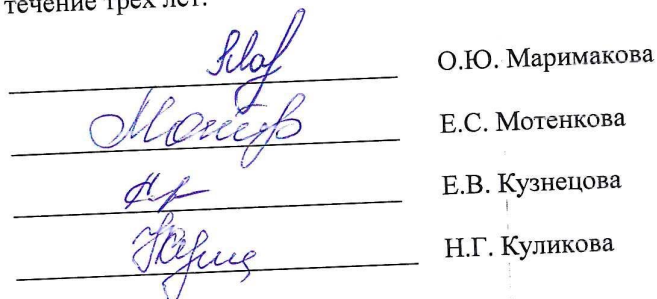 течение трех лет.
О.Ю. Маримакова
Е.С. Мотенкова
Е.В. Кузнецова
Н.Г. Куликова